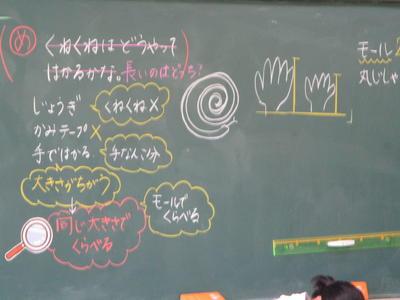 め
くねくねはどうやって
はかるかな。長いのはどっち?
じょうぎ
くねくね×
かみテープ×
手ではかる
手なんこ分
大きさがちがう
同じ大きさで
くらべる
モールで
くらべる
モール
丸じしゃ